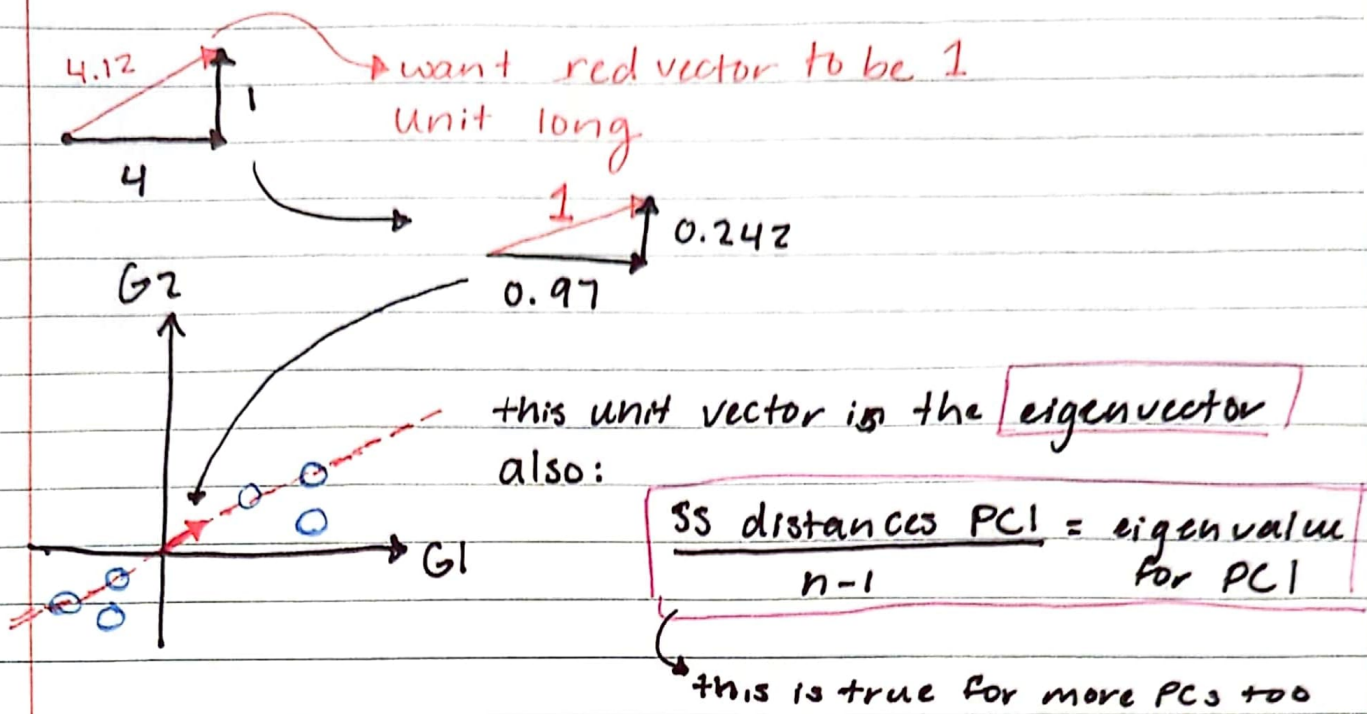 4.12
want red vector to be 1
unit long
1
4
1
0.242
0.97
G2
this unit vector is the eigenvector
also:
SS distances PC1 = eigenvalue
n-1 for PC1
G1
this is true for more PCs too